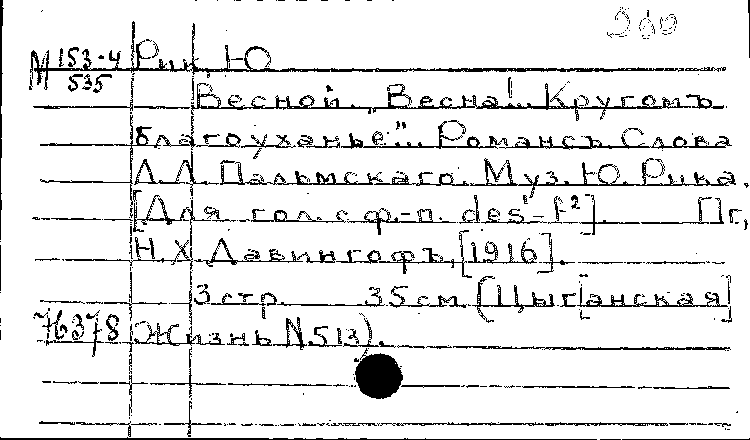 200
М 153-4/535 Рик, Ю
Весной. „Весна!.. Кругомъ
благоуханье"... Романсъ. Слова
Л.Л. Пальмскаго. Муз. Ю. Рика.
[Для гол. с ф.-п. des¹-f²]. Пг,
Н.Х. Давингофъ, [1916].
3 стр. 35 см. (Цыг[анская]
76378 Жизнь N.513).